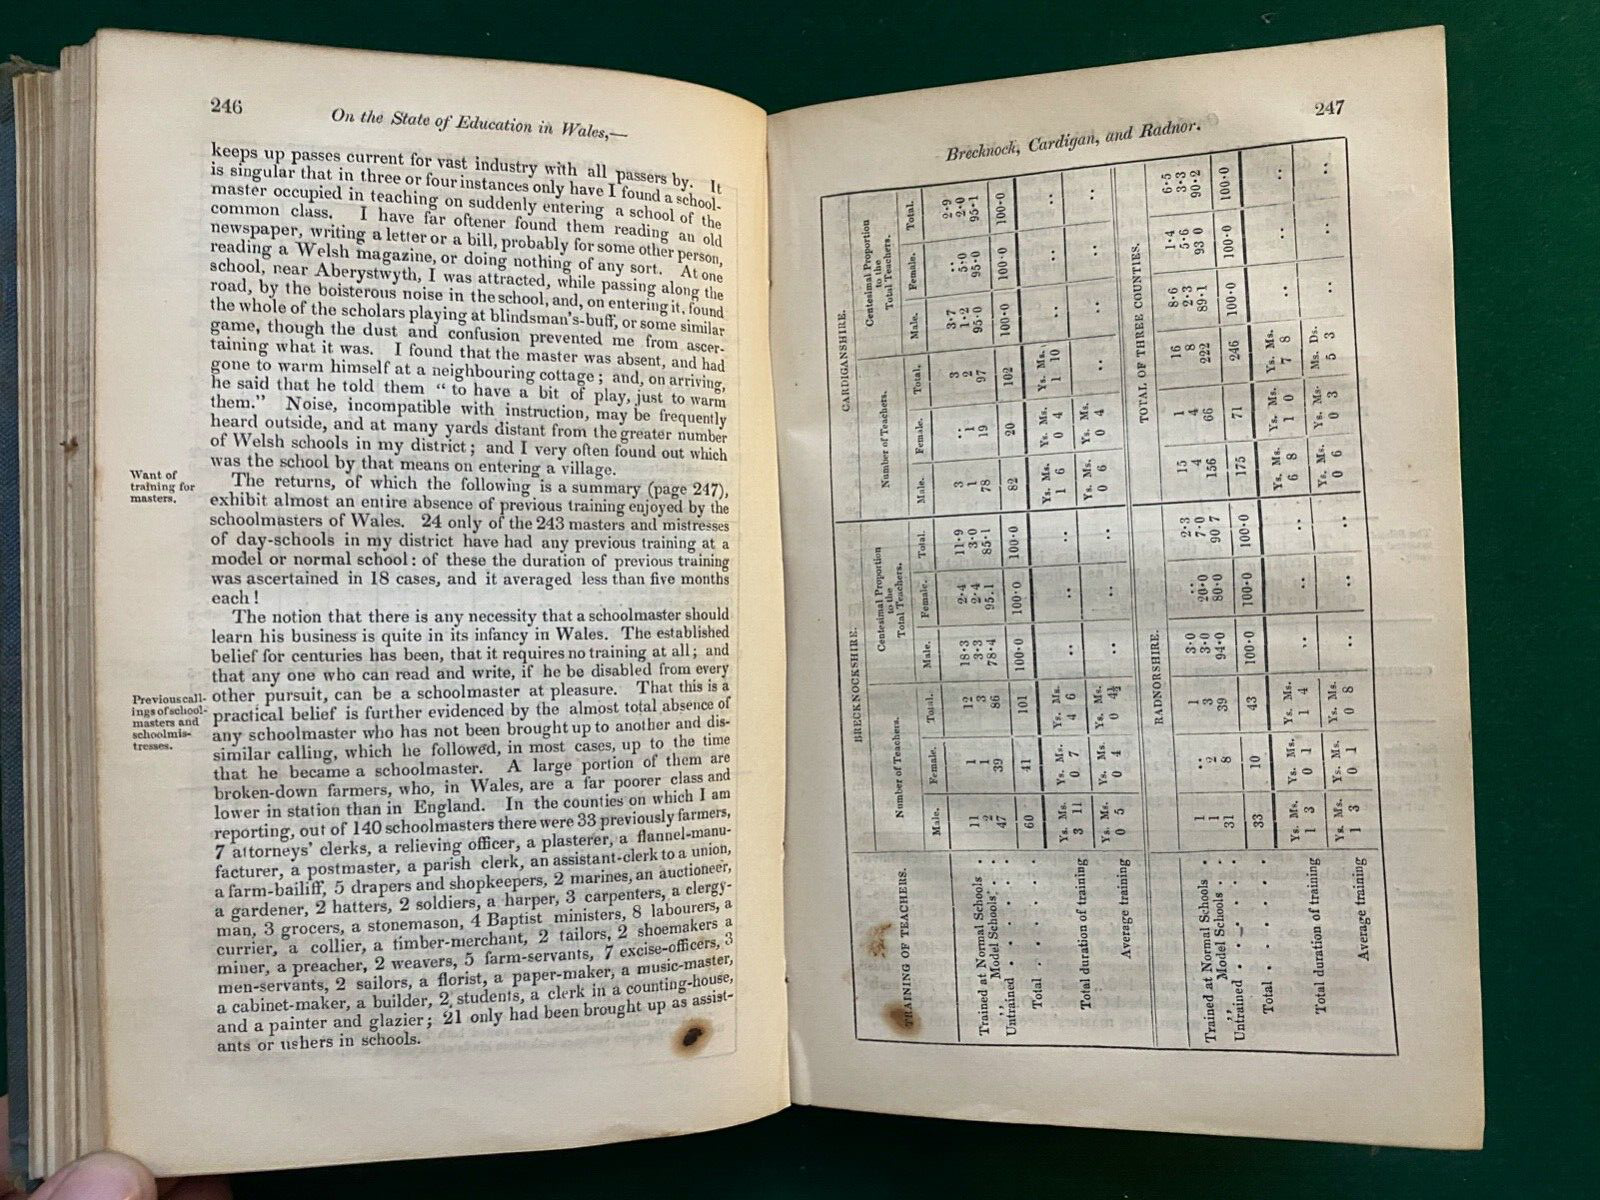 246
On the State of Education in Wales,—
keeps up passes current for vast industry with all passers by. It
is singular that in three or four instances only have I found a school-
master occupied in teaching on suddenly entering a school of the
common class. I have far oftener found them reading an old
newspaper, writing a letter or a bill, probably for some other person,
reading a Welsh magazine, or doing nothing of any sort. At one
school, near Aberystwyth, I was attracted, while passing along the
road, by the boisterous noise in the school, and, on entering it, found
the whole of the scholars playing at blindsman's-buff, or some similar
game, though the dust and confusion prevented me from ascer-
taining what it was. I found that the master was absent, and had
gone to warm himself at a neighbouring cottage; and, on arriving,
he said that he told them "to have a bit of play, just to warm
them." Noise, incompatible with instruction, may be frequently
heard outside, and at many yards distant from the greater number
of Welsh schools in my district; and I very often found out which
was the school by that means on entering a village.
Want of
training for
masters.
The returns, of which the following is a summary (page 247),
exhibit almost an entire absence of previous training enjoyed by the
schoolmasters of Wales. 24 only of the 243 masters and mistresses
of day-schools in my district have had any previous training at a
model or normal school: of these the duration of previous training
was ascertained in 18 cases, and it averaged less than five months
each!
The notion that there is any necessity that a schoolmaster should
learn his business is quite in its infancy in Wales. The established
belief for centuries has been, that it requires no training at all; and
that any one who can read and write, if he be disabled from every
Previous call-
ings of school-
masters and
schoolmis-
tresses.
other pursuit, can be a schoolmaster at pleasure. That this is a
practical belief is further evidenced by the almost total absence of
any schoolmaster who has not been brought up to another and dis-
similar calling, which he followed, in most cases, up to the time
that he became a schoolmaster. A large portion of them are
broken-down farmers, who, in Wales, are a far poorer class and
lower in station than in England. In the counties on which I am
reporting, out of 140 schoolmasters there were 33 previously farmers,
7 attorneys' clerks, a relieving officer, a plasterer, a flannel-manu-
facturer, a postmaster, a parish clerk, an assistant-clerk to a union,
a farm-bailiff, 5 drapers and shopkeepers, 2 marines, an auctioneer,
a gardener, 2 hatters, 2 soldiers, a harper, 3 carpenters, a clergy-
man, 3 grocers, a stonemason, 4 Baptist ministers, 8 labourers, a
currier, a collier, a timber-merchant, 2 tailors, 2 shoemakers a
miner, a preacher, 2 weavers, 5 farm-servants, 7 excise-officers, 3
men-servants, 2 sailors, a florist, a paper-maker, a music-master,
a cabinet-maker, a builder, 2 students, a clerk in a counting-house,
and a painter and glazier; 21 only had been brought up as assist-
ants or ushers in schools.
247
Brecknock, Cardigan, and Radnor.
TRAINING OF TEACHERS. BRECKNOCKSHIRE. CARDIGANSHIRE.
Number of Teachers. Centesimal Proportion to the Total Teachers. Number of Teachers. Centesimal Proportion to the Total Teachers.
Male. Female. Total. Male. Female. Total. Male. Female. Total. Male. Female. Total.
Trained at Normal Schools . 11 1 12 18·3 2·4 11·9 3 .. 3 3·7 .. 2·9
,, Model Schools . . 2 1 3 3·3 2·4 3·0 1 1 2 1·2 5·0 2·0
Untrained . . . . . 47 39 86 78·4 95.1 85·1 78 19 97 95·0 95·0 95·1
Total . . . . . 60 41 101 100·0 100·0 100·0 82 20 102 100·0 100·0 100·0
Ys. Ms. Ys. Ms. Ys. Ms. Ys. Ms. Ys. Ms. Ys. Ms.
Total duration of training 3 11 0 7 4 6 .. .. .. 1 6 0 4 1 10 .. .. ..
Ys. Ms. Ys. Ms. Ys. Ms. Ys. Ms. Ys. Ms.
Average training 0 5 0 4 0 4½ .. .. .. 0 6 0 4 .. .. .. ..
RADNORSHIRE. TOTAL OF THREE COUNTIES.
Trained at Normal Schools . 1 .. 1 3·0 .. 2·3 15 1 16 8·6 1·4 6·5
,, Model Schools . . 1 2 3 3·0 20·0 7·0 4 4 8 2·3 5·6 3·3
Untrained . . . . . 31 8 39 94·0 80·0 90 7 156 66 222 89·1 93 0 90·2
Total . . . . . 33 10 43 100·0 100·0 100·0 175 71 246 100·0 100·0 100·0
Ys. Ms. Ys. Ms. Ys. Ms. Ys. Ms. Ys. Ms. Ys. Ms.
Total duration of training 1 3 0 1 1 4 .. .. .. 6 8 1 0 7 8 .. .. ..
Ys. Ms. Ys. Ms. Ys. Ms. Ys. Ms. Ys. Ms. Ms. Ds.
Average training 1 3 0 1 0 8 .. .. .. 0 6 0 3 5 3 .. .. ..